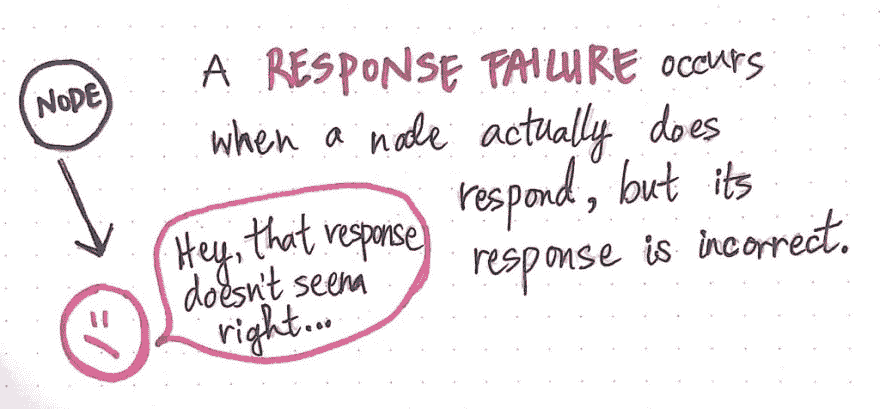 NODE
A RESPONSE FAILURE occurs
when a node actually does
respond, but its
response is incorrect.
Hey, that response
doesn't seem
right...